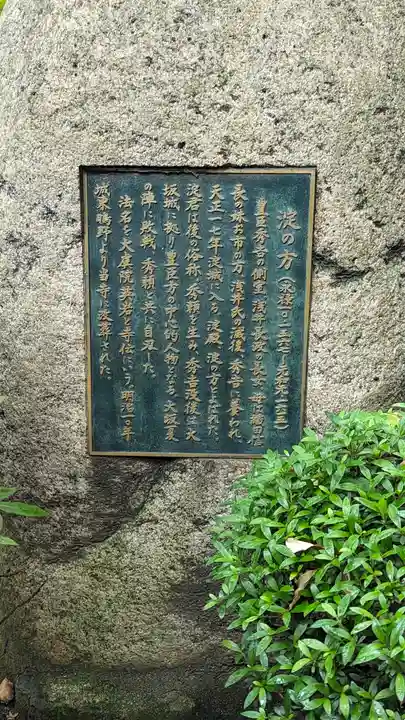 淀の方（永禄一〇・一五六七～元和元・一六一五）
豊臣秀吉の側室、浅井長政の長女、母は織田信
長の妹お市の方、浅井氏の滅後、秀吉に養われ、
天正一七年淀城に入る。淀殿、淀の方とよばれた。
淀君は後の俗称。秀頼を生み、秀吉没後は大
坂城に拠り豊臣方の中心的人物となる。大阪夏
の陣に敗戦、秀頼と共に自刃した。
法名を大虞院英岩と寺伝にいう。明治一〇年
城東鴫野より当寺に改葬された。